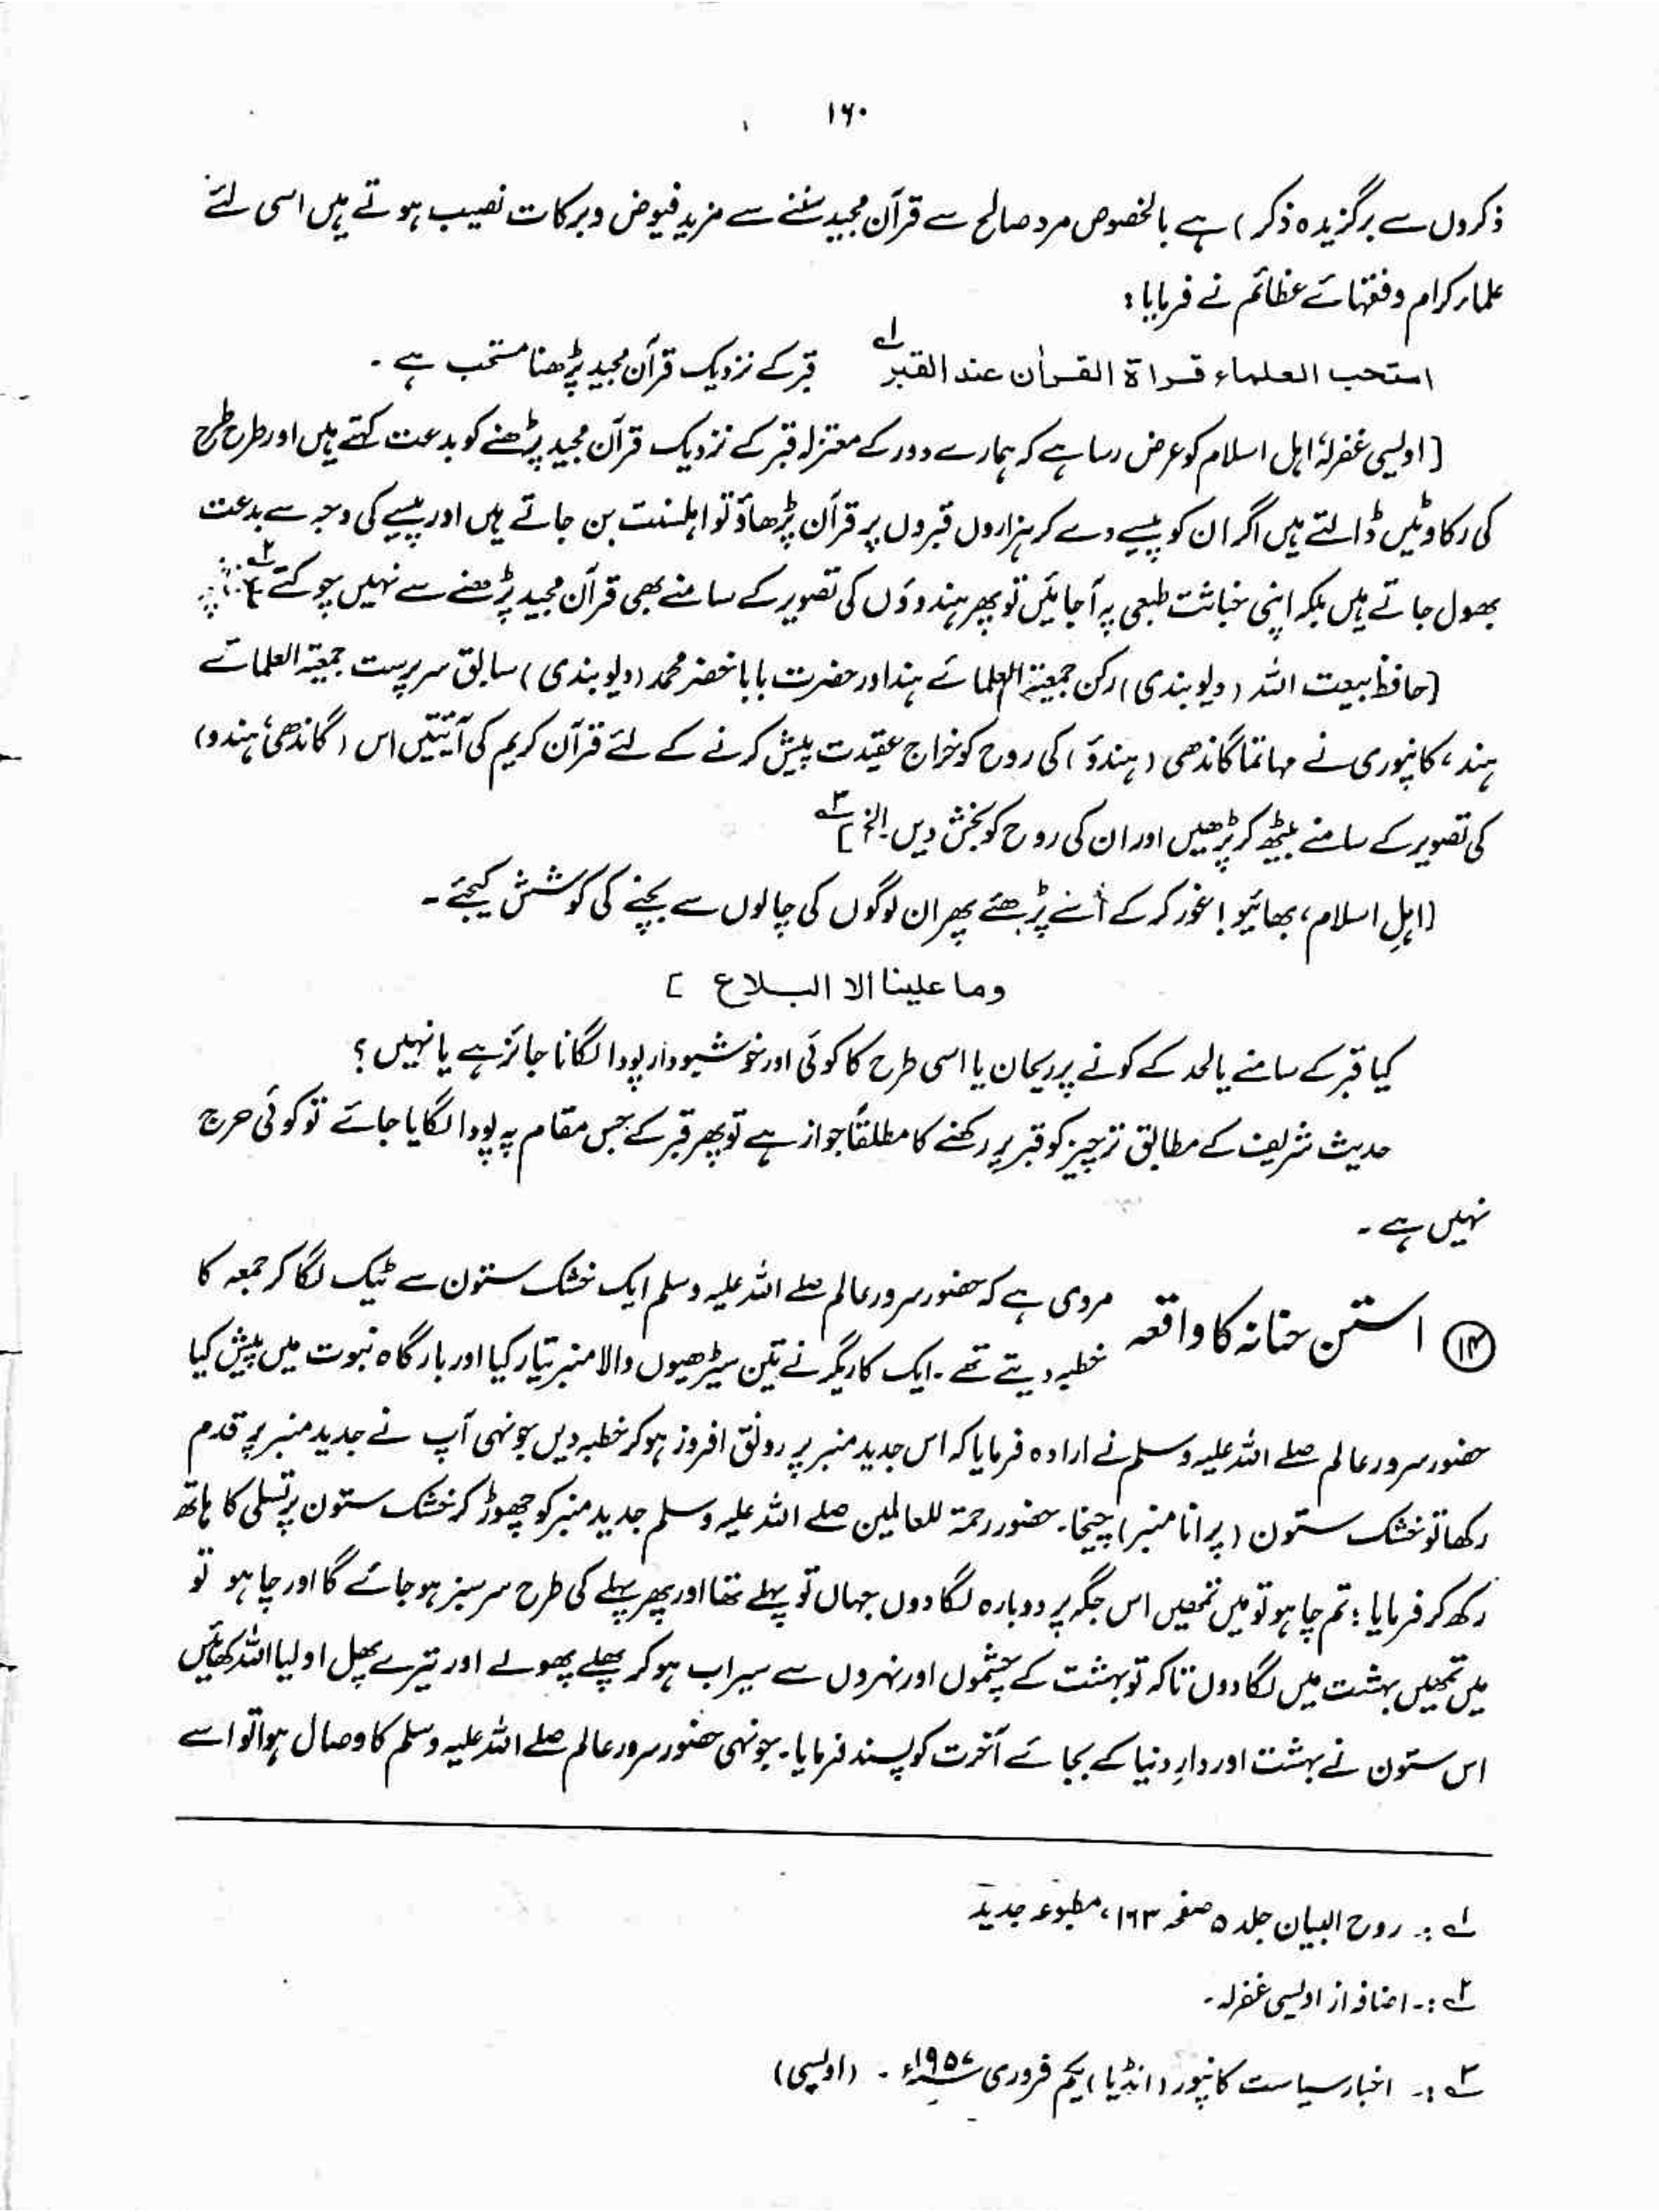 ۱۶۰
ذکروں سے برگزیدہ ذکر) ہے بالخصوص مرد صالح سے قرآن مجید سننے سے مزید فیوض و برکات نصیب ہوتے ہیں اسی لئے
علماء کرام و فقہائے عظائم نے فرمایا:
استحب العلماء قراۃ القراٰن عند القبر ۱ قبر کے نزدیک قرآن مجید پڑھنا مستحب ہے۔
[اویسی غفرلہٗ اہل اسلام کو عرض رسا ہے کہ ہمارے دور کے معتزلہ قبر کے نزدیک قرآن مجید پڑھنے کو بدعت کہتے ہیں اور طرح طرح
کی رکاوٹیں ڈالتے ہیں اگر ان کو پیسے دے کر ہزاروں قبروں پر قرآن پڑھاؤ تو اہلسنت بن جاتے ہیں اور پیسے کی وجہ سے بدعت
بھول جاتے ہیں بلکہ اپنی خباثت طبعی پہ آجائیں تو پھر ہندوؤں کی تصویر کے سامنے بھی قرآن مجید پڑھنے سے نہیں چوکتے ۲
[حافظ بیعت اللہ (دیوبندی) رکن جمعیۃ العلمائے ہند اور حضرت بابا خضر محمد (دیوبندی) سابق سرپرست جمعیۃ العلمائے
ہند، کانپوری نے مہاتما گاندھی (ہندو) کی روح کو خراج عقیدت پیش کرنے کے لئے قرآن کریم کی آیتیں اس (گاندھی ہندو)
کی تصویر کے سامنے بیٹھ کر پڑھیں اور ان کی روح کو بخش دیں۔ الخ] ۳
[اہلِ اسلام، بھائیو! غور کر کے اُنے پڑھئے پھر ان لوگوں کی چالوں سے بچنے کی کوشش کیجئے۔
وما علینا الا البلاغ ]
کیا قبر کے سامنے یا لحد کے کونے پر ریحان یا اسی طرح کا کوئی اور خوشبودار پودا لگانا جائز ہے یا نہیں؟
حدیث شریف کے مطابق تر چیز کو قبر پر رکھنے کا مطلقاً جواز ہے تو پھر قبر کے جس مقام پہ پودا لگایا جائے تو کوئی حرج
نہیں ہے۔
⑭ استن حنانہ کا واقعہ مروی ہے کہ حضور سرور عالم صلے اللہ علیہ وسلم ایک خشک ستون سے ٹیک لگا کر جمعہ کا
خطبہ دیتے تھے۔ ایک کاریگر نے تین سیڑھیوں والا منبر تیار کیا اور بارگاہ نبوت میں پیش کیا
حضور سرور عالم صلے اللہ علیہ وسلم نے ارادہ فرمایا کہ اس جدید منبر پر رونق افروز ہو کر خطبہ دیں جونہی آپ نے جدید منبر پر قدم
رکھا تو خشک ستون (پرانا منبر) چیخا۔ حضور رحمۃ للعالمین صلے اللہ علیہ وسلم جدید منبر کو چھوڑ کر خشک ستون پر تسلی کا ہاتھ
رکھ کر فرمایا: تم چاہو تو میں تمھیں اس جگہ پر دوبارہ لگا دوں جہاں تو پہلے تھا اور پھر پہلے کی طرح سرسبز ہو جائے گا اور چاہو تو
میں تمھیں بہشت میں لگا دوں تاکہ تو بہشت کے چشموں اور نہروں سے سیراب ہو کر پھلے پھولے اور تیرے پھل اولیا اللہ کھائیں
اس ستون نے بہشت اور دارِ دنیا کے بجائے آخرت کو پسند فرمایا۔ جونہی حضور سرور عالم صلے اللہ علیہ وسلم کا وصال ہوا تو اسے
۱ :۔ روح البیان جلد ۵ صفحہ ۱۶۳، مطبوعہ جدید
۲ :۔ اضافہ از اویسی غفرلہ۔
۳ :۔ اخبار سیاست کانپور (انڈیا) یکم فروری ۱۹۵۷ء۔ (اویسی)